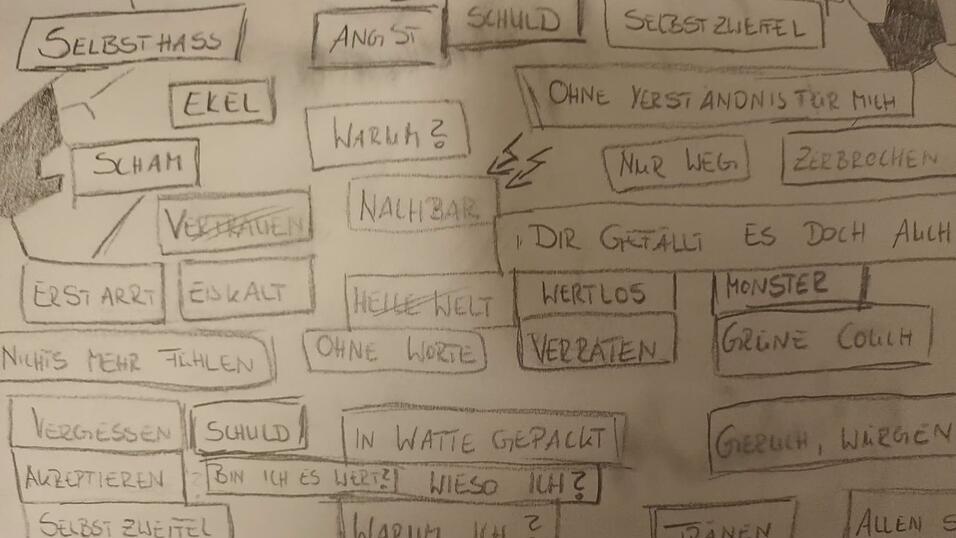 SELBSTHASS
ANGST
SCHULD
SELBSTZWEIFEL
EKEL
OHNE VERSTÄNDNIS FÜR MICH
WARUM?
SCHAM
NUR WEG
ZERBROCHEN
VERTRAUEN
NACHBAR
DIR GEFÄLLT ES DOCH AUCH
ERSTARRT
EISKALT
HEILE WELT
WERTLOS
MONSTER
NICHTS MEHR FÜHLEN
OHNE WORTE
VERRATEN
GRÜNE COUCH
VERGESSEN
SCHULD
IN WATTE GEPACKT
GERUCH, WÜRGEN
AKZEPTIEREN
BIN ICH ES WERT?
WIESO ICH?
SELBSTZWEIFEL
WARUM ICH?
TRÄNEN
ALLEN S